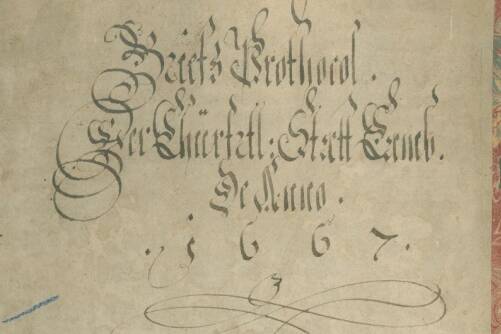 Briefs Prothocol.
Der Chürfrtl: Statt
De Anno.
. 1 6 6 7 .
3